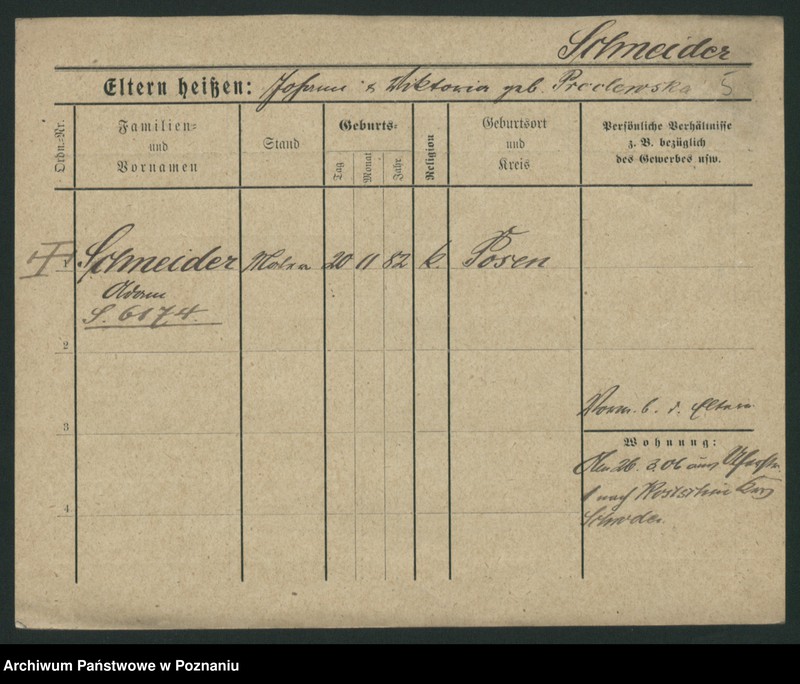 Schneider
Eltern heißen: Johann & Viktoria geb. 5
Ordn.-Nr.
Familien-
und
Vornamen
Stand
Geburts-
Tag
Monat
Jahr
Religion
Geburtsort
und
Kreis
Persönliche Verhältnisse
z. B. bezüglich
des Gewerbes usw.
1 Schneider Maler 20 11 82 k. Posen
Adam
S. 6174.
2
3
4
Vorm. b. d. Eltern
Wohnung:
26. 3. 06
1 nach Kostschin
Schroda.
Archiwum Państwowe w Poznaniu